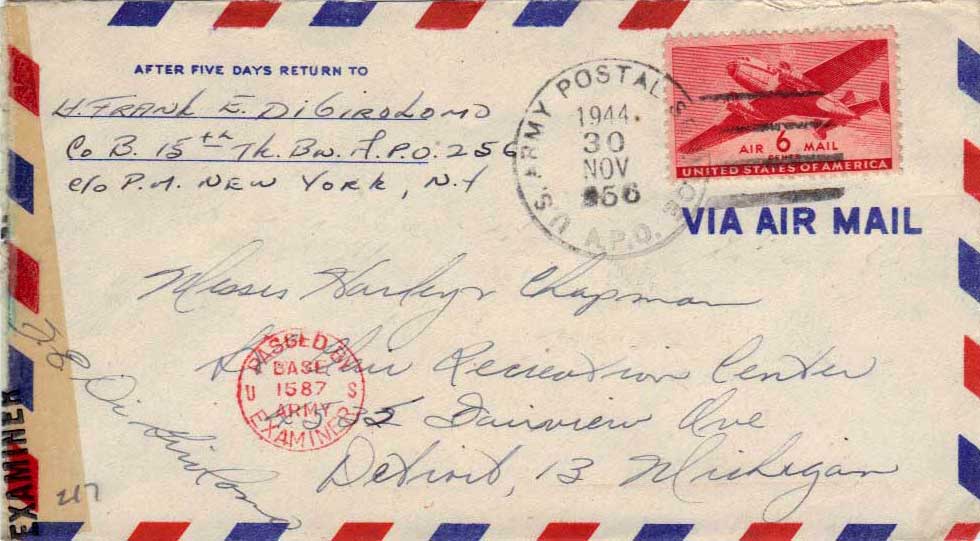 AFTER FIVE DAYS RETURN TO
Lt. FRANK E. DiGIROLOMO
Co B. 15th Tk. Bn. A.P.O. 256
c/o P.M. NEW YORK, N.Y
U.S. ARMY POSTAL SERVICE
1944
30
NOV
256
A.P.O.
AIR 6 MAIL
CENTS
UNITED STATES OF AMERICA
VIA AIR MAIL
Misses Harley & Chapman
St. Clair Recreation Center
PASSED BY
BASE
U 1587 S
ARMY
EXAMINER
Fairview Ave
Detroit, 13 Michigan
EXAMINER
217